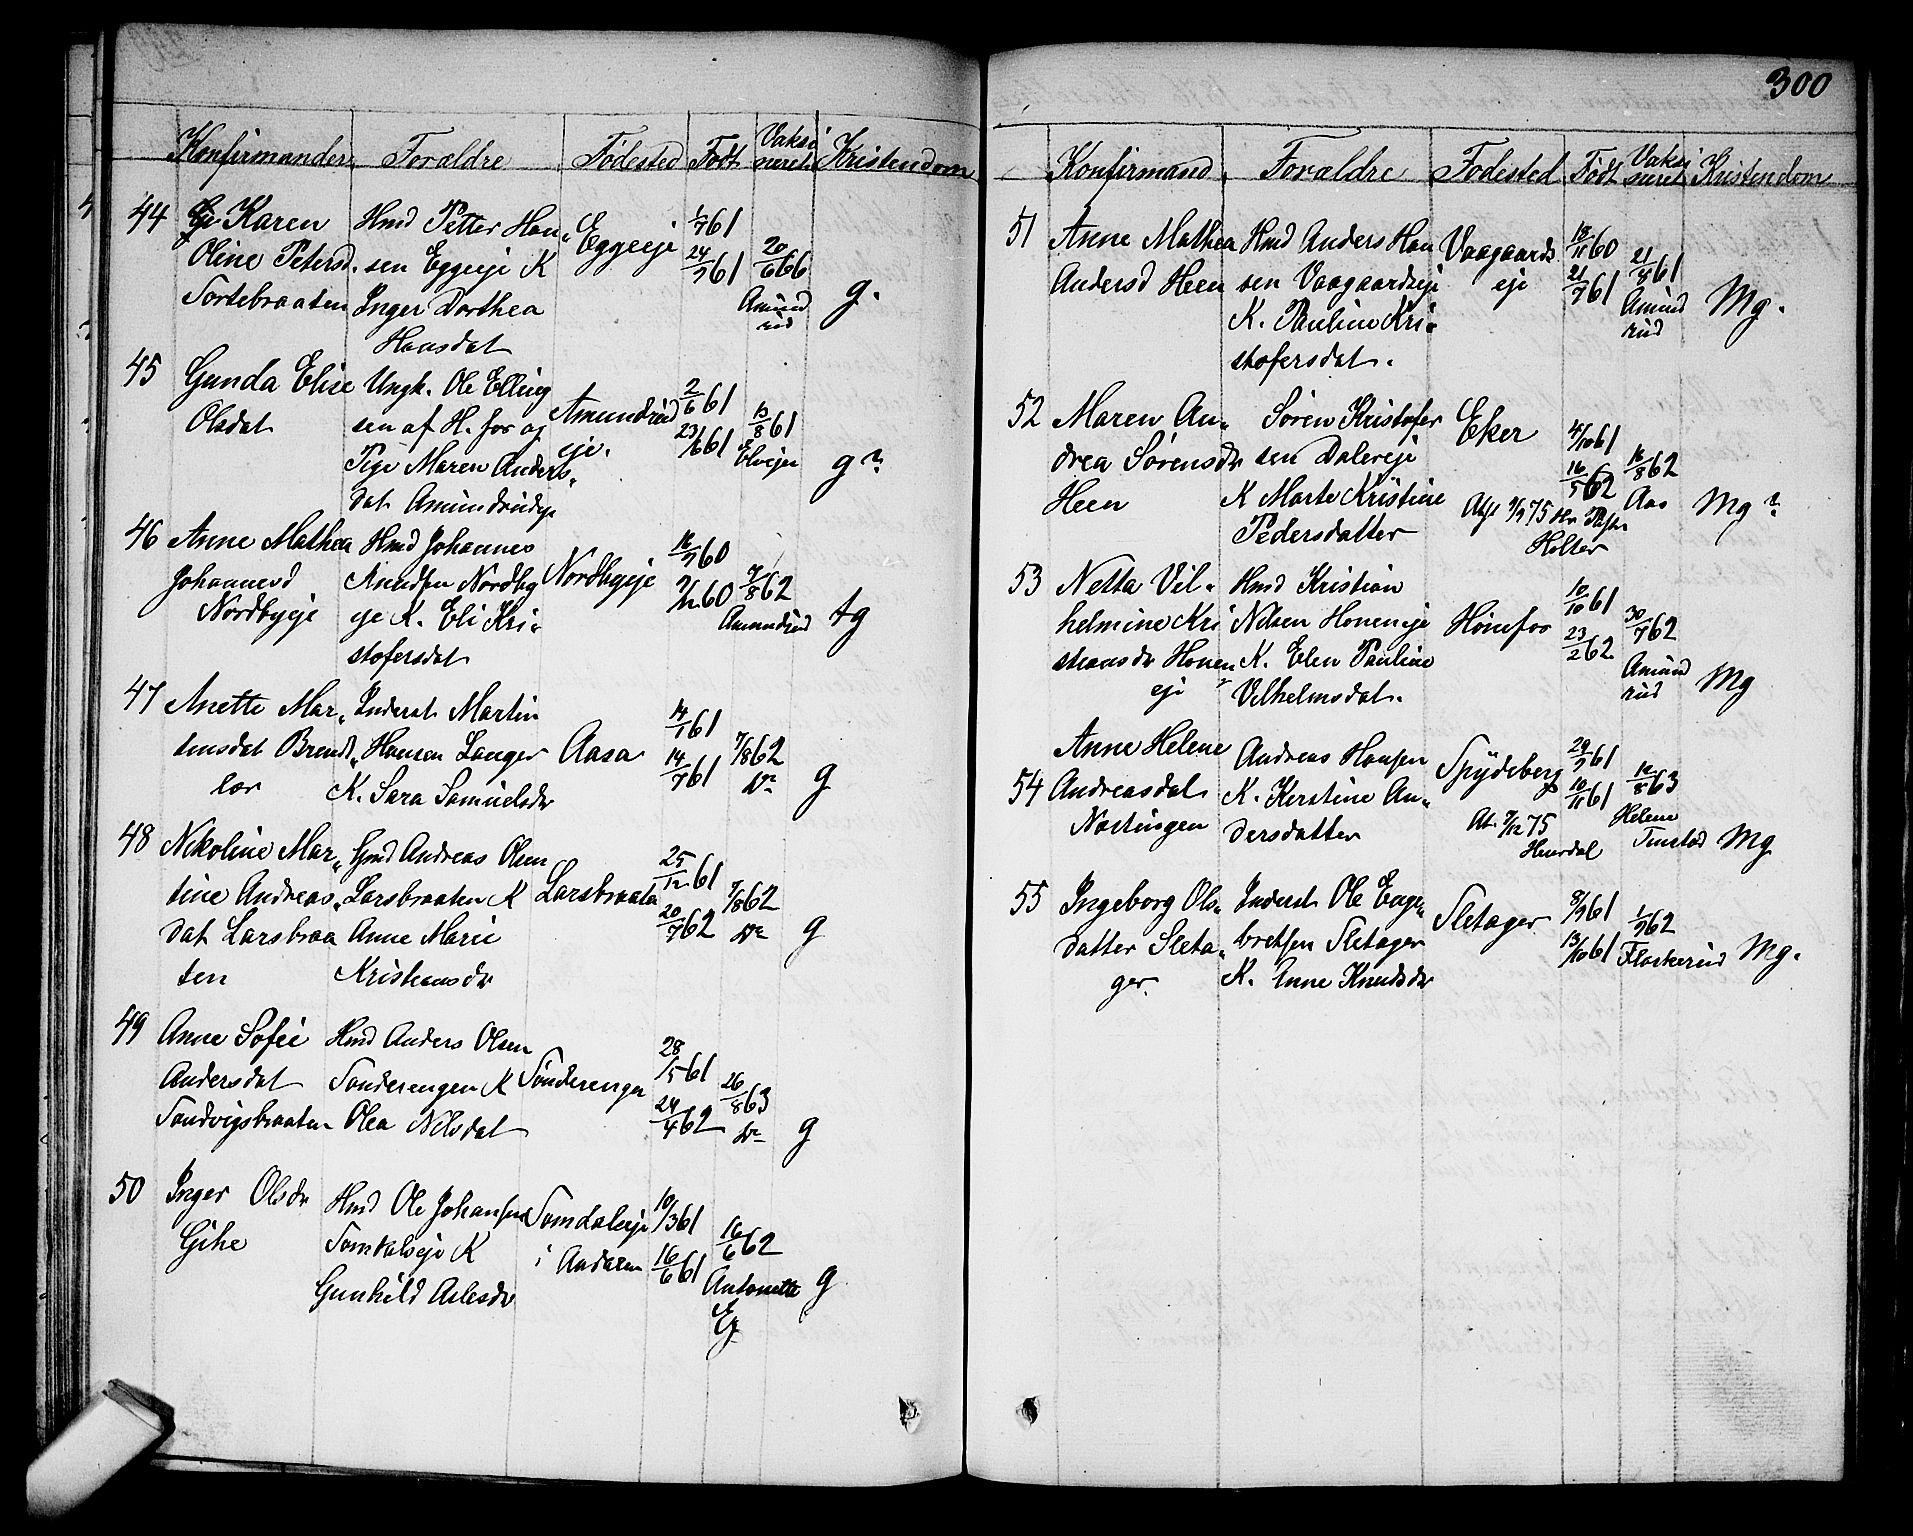 300
Konfirmander. Forældre Fødested Født Vaksineret Kristendom
44 Karen Oline Petersd. Tortebraaten
Hmd Petter Hansen Eggeeje K Inger Dorthea Hansdat
Eggeeje
1/7 61
24/9 61
20/6 66 Amundrud
g.
45 Gunda Elise Olsdat
Ungk. Ole Ellingsen af H.fos og Pige Maren Andersdat Amundrudeje
Amundrudeje.
2/6 61
23/6 61
13/8 61
g
46 Anne Mathea Johannesd Nordbyeje
Hmd Johannes Knudsen Nordbyeje K. Eli Kristofersdat
Nordbyeje
16/9 60
60
7/8 62 Amundrud
tg
47 Anette Martinsdat
Inderst Martin Hansen K. Sara Samuelsdr
Aasa
14/1 61
14/7 61
7/8 62 Do
g
48 Nikoline Martine Andreasdat Larsbraaten
Hmd Andreas Olsen Larsbraaten K Anne Marie Kristiansdr
Larsbraaten
25/12 61
20/7 62
7/8 62 Do
g
49 Anne Sofie Andersdat Sandvigsbraaten
Hmd Anders Olsen Sønderengen K Olea Nilsdat
Sønderengen
28/5 61
24/4 62
26/8 63 Do
g
50 Inger Olsdr
Hmd Ole Johansen Somdalseje K Gunhild Aslesdr
Somdaleeje i
10/3 61
16/6 61
16/6 62 Antonette
g
Konfirmand. Forældre Fødested. Født Vaksineret Kristendom
51 Anne Mathea Andersd Heen
Hmd Anders Hansen Vaagaardseje K. Pauline Kristofersdat.
Vaagaardseje
18/11 60
21/7 61
21/4 61 Amundrud
Mg.
52 Maren Andrea Sørensdr Heen
Søren Kristofersen Dalereje K Marte Kristine Pedersdatter
Eker
4/10 61
16/5 62
75 Holter
16/8 62 Aas
Mg
53 Netta Vilhelmine Kristiansdr Honeneje
Hmd Kristian Nilsen Honeneje K. Elen Pauline Vilhelmsdat.
Hønefos
10/10 61
23/2 62
30/7 62 Amundrud
Mg
54 Anne Helene Andreasdat
Andreas Hansen K. Kerstine Andersdatter
Spydeberg
29/9 61
10/11 61
75
63 Helene
Mg
55 Ingeborg Olsdatter Sletager.
Inderst Ole Engebretsen Sletager K. Anne Knudsdr
Sletager
8/9 61
13/10 61
1/9 62 Flaskerud
Mg.